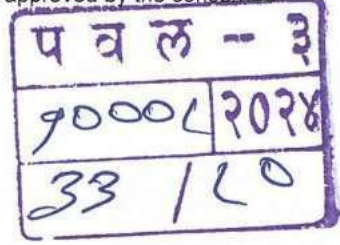 approved by the
प व ल -- ३
१०००८ २०२४
३३ / ८०